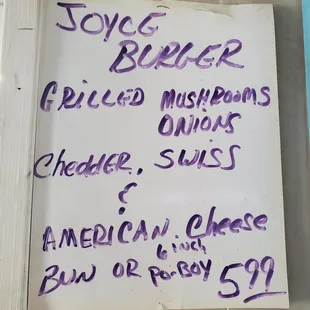 JOYCE
BURGER
GRILLED MUSHROOMS
ONIONS
Chedder, SWISS
&
AMERICAN. Cheese
BUN OR 6 inch PorBOY 5.99